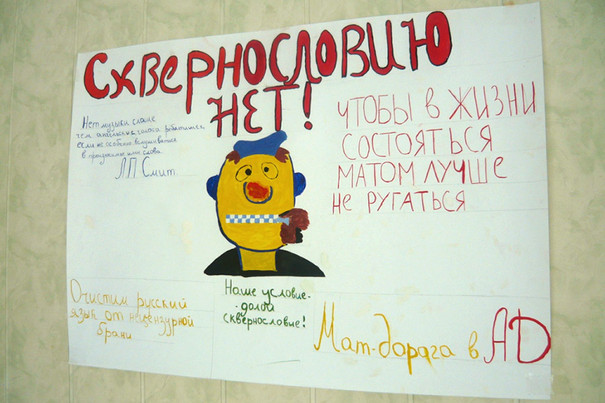 Сквернословию
нет!
Нет музыки слаще
ЛП Смит
чтобы в жизни
состояться
матом лучше
не ругаться
Очистим русский
язык от нецензурной
брани
Наше условие-
-долой
сквернословие!
Мат-дорага в АД